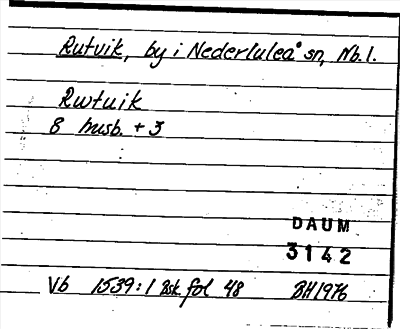 Rutvik, by i Nederluleå sn, Nb.l.
Rwtuik
8 husb. + 3
DAUM
3142
Vb 1539:1 Bsk. fol 48 BH 1976